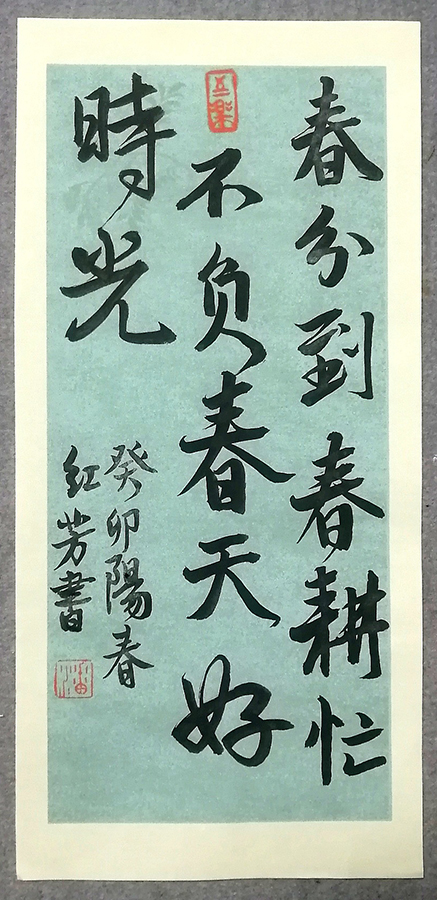 春分到春耕忙
不负春天好
時光
癸卯陽春
红芳書